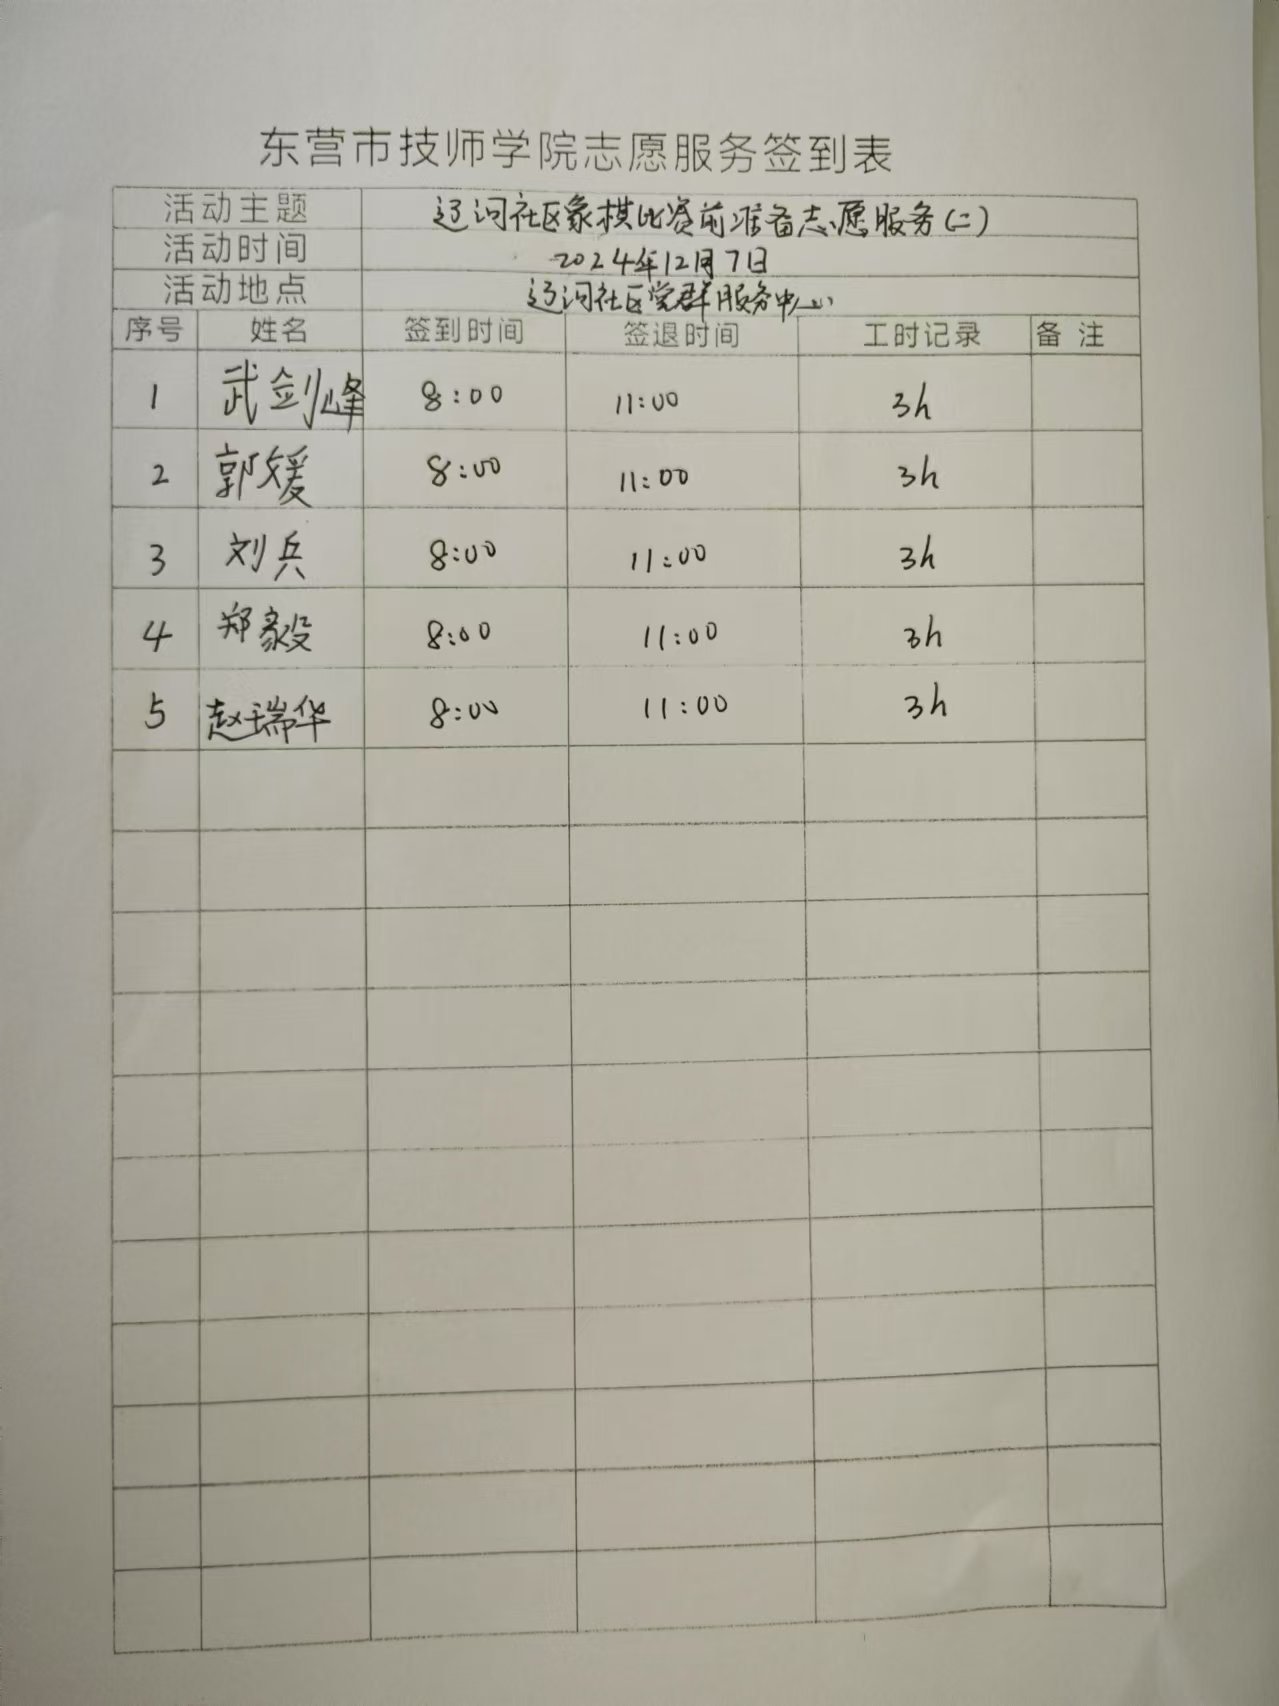 东营市技师学院志愿服务签到表
活动主题 辽河社区象棋比赛前准备志愿服务(二)
活动时间 2024年12月7日
活动地点 辽河社区党群服务中心
序号 姓名 签到时间 签退时间 工时记录 备注
1 武剑峰 8:00 11:00 3h
2 郭媛 8:00 11:00 3h
3 刘兵 8:00 11:00 3h
4 郑毅 8:00 11:00 3h
5 赵瑞华 8:00 11:00 3h